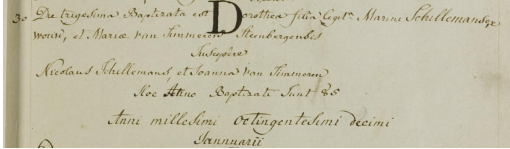 30 Die trigesima Baptizata est Dorothea filia Legit: Marini Schillemans
wouw, et Mariæ van Timmeren Steenbergensis
Suscepere
Nicolaus Schillemans, et Joanna van Timmeren
Hoc Anno Baptizati sunt 85
Anni millesimi octingentesimi decimi
Januarii